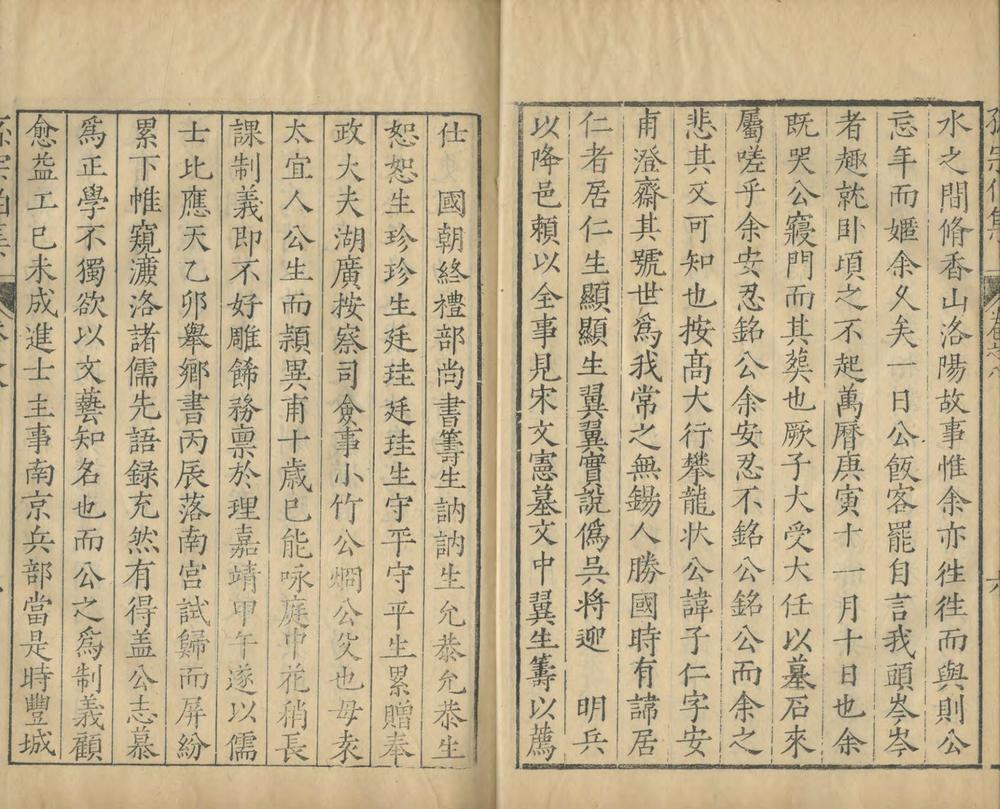 水之間脩香山洛陽故事惟余亦徃徃而與則公
忘年而嫟余夊矣一日公飯客罷自言我頭岑岑
者趣就卧頃之不起萬曆庚寅十一月十日也余
既哭公寢門而其葬也厥子大受大任以墓石來
屬嗟乎余安忍銘公余安忍不銘公銘公而余之
悲其又可知也按髙大行攀龍状公諱子仁字安
甫澄齋其號世爲我常之無錫人勝國時有諱居
仁者居仁生顯顯生翼翼實說僞吳将迎　明兵
以降邑頼以全事見宋文憲墓文中翼生籌以薦
仕　國朝終禮部尚書籌生訥訥生允恭允恭生
恕恕生珍珍生廷珪廷珪生守平守平生累贈奉
政大夫湖廣按察司僉事小竹公燗公父也母袁
太宜人公生而穎異甫十歳已能咏庭中花稍長
課制義即不好雕餙務禀於理嘉靖甲午遂以儒
士比應天乙卯舉鄉書丙辰落南宫試歸而屏紛
累下帷窺濂洛諸儒先語録充然有得盖公志慕
爲正學不獨欲以文藝知名也而公之爲制義顧
愈益工已未成進士主事南京兵部當是時豐城